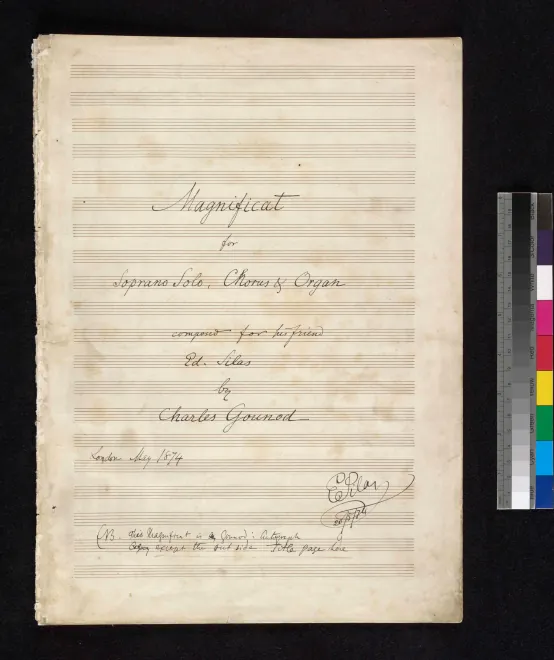 Magnificat
for
Soprano Solo, Chorus & Organ
composed for his friend
Ed. Silas
by
Charles Gounod
London May 1874
E Silas
NB. This Magnificat is Gounod's Autograph
except the outside Title page here